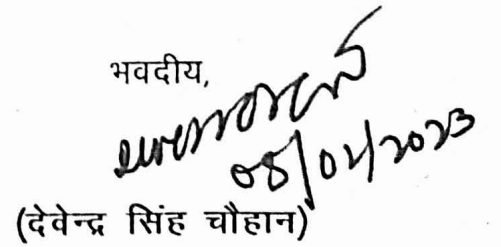 भवदीय,
08/02/2023
(देवेन्द्र सिंह चौहान)